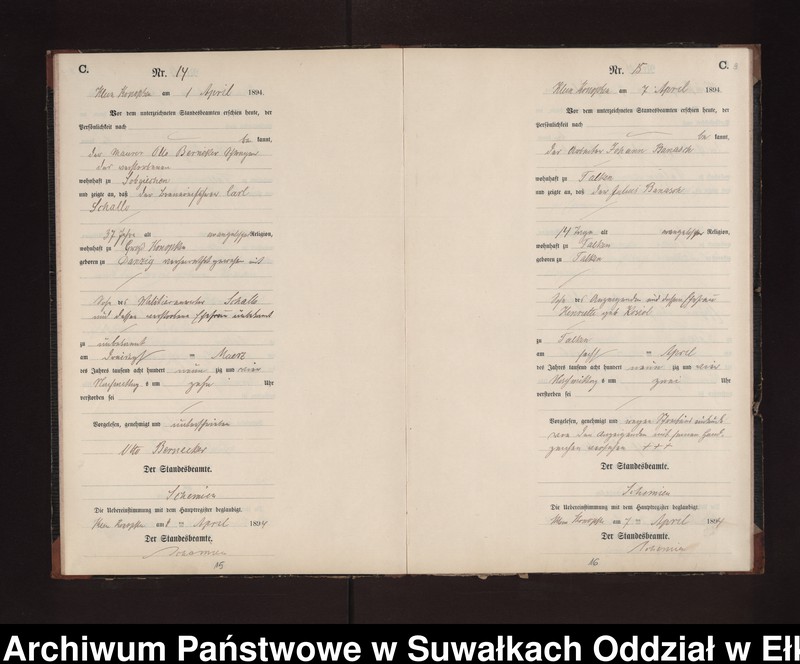 C.
Nr. 14
Klein Konopken am 1 April 1894.
Vor dem unterzeichneten Standesbeamten erschien heute, der
Persönlichkeit nach
be kannt,
der Maurer Otto Bernecker
des verstorbenen
wohnhaft zu
und zeigte an, daß der Carl
Schalle
37 Jahre alt evangelischer Religion,
wohnhaft zu Groß Konopken
geboren zu Danzig verheirathet gewesen mit
Sohn des Schalle
und dessen verstorbene Ehefrau unbekannt
zu unbekannt
am Maerz
des Jahres tausend acht hundert neun zig und vier
Nachmittag s um zehn Uhr
verstorben sei
Vorgelesen, genehmigt und unterschrieben
Otto Bernecker
Der Standesbeamte.
Schamien
Die Uebereinstimmung mit dem Hauptregister beglaubigt.
Klein Konopken am April 1894
Der Standesbeamte.
Schamien
15
C.
Nr. 15
Klein Konopken am 7 April 1894.
Vor dem unterzeichneten Standesbeamten erschien heute, der
Persönlichkeit nach
be kannt,
der Arbeiter Johann Banasch
wohnhaft zu Talken
und zeigte an, daß der Julius Banasch
14 Tage alt evangelischer Religion,
wohnhaft zu Talken
geboren zu Talken
Sohn des Anzeigenden und dessen Ehefrau
Henriette geb
zu Talken
am April
des Jahres tausend acht hundert neun zig und vier
Nachmittag s um zwei Uhr
verstorben sei
Vorgelesen, genehmigt und wegen
von dem Anzeigenden mit seinen Hand-
zeichen versehen +++
Der Standesbeamte.
Schamien
Die Uebereinstimmung mit dem Hauptregister beglaubigt.
Klein Konopken am 7 April 1894
Der Standesbeamte.
Schamien
16
Archiwum Państwowe w Suwałkach Oddział w Ełk